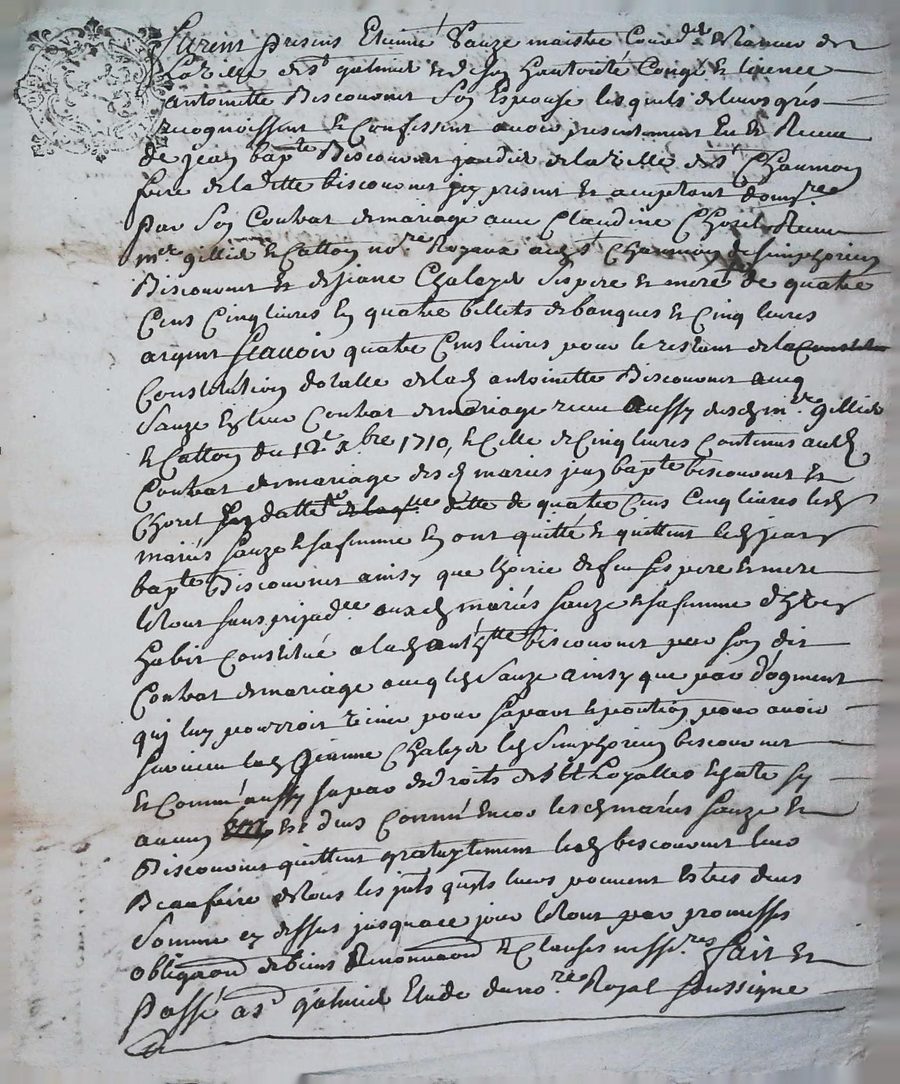 furent presens Etienne Sauze maistre Cord.er
la ville de St galmier et de son hautorité Congé et licence
antoinette Biscouvier Son Espouse lesquels de leurs grés
recognoissent et Confessent avoir presentement Eu et Receu
de jean bapte Biscouvier de la ville de St Chaumon
frere de laditte biscouvier icy present et acceptant
par Son Contrat de mariage avec Claudine Chorel Receu
mes gillier et Catton nores Royaux a St Chaumon de Simphorien
Biscouvier et de Jeane Chaleyer Ses pere et mere de quatre
Cens Cinq livres En quatre billets de banques et Cinq livres
argent scauoir quatre Cens livres pour le restant de la
Constitution dotalle de lad antoinette Biscouvier aucq
Sauze En leur Contrat de mariage receu Aussy desd mre gillier
et Catton du 12e xbre 1710, et Celle de Cinq livres Contenus aud
Contrat de mariage desd mariés jean bapte biscouvier et
Chorel de laqlle ditte de quatre Cens Cinq livres lesd
mariés Sauze et sa femme En ont quitté et quittent led jean
bapte Biscouvier ainsy que hoirie de feu Ses pere et mere
le tout sans prejudce auxd mariés Sauze et sa femme
habit Constitué a lad antoitte biscouvier par Son dit
Contrat de mariage aucq led Sauze ainsy que par d'ogment
qui luy pourroit Venir pour sa part et portion pour avoir
survieu lad Jeanne Chaleyer led Simphorien biscouvier
et Comme aussy sa part de droits et Loyalles sy
aucun est deus Comme Encor lesd mariés Sauze et
Biscouvier quittent gratuytement led biscouvier leur
Beaufrere de tous les jnts qu'jls leurs pouvoient Estres deus
Somme cy dessus jusqua ce jour le tout par promesses
obligaon de biens Renonnaon et Clauses nessres fait et
passé a St galmier Etude du nore Royal soussigne